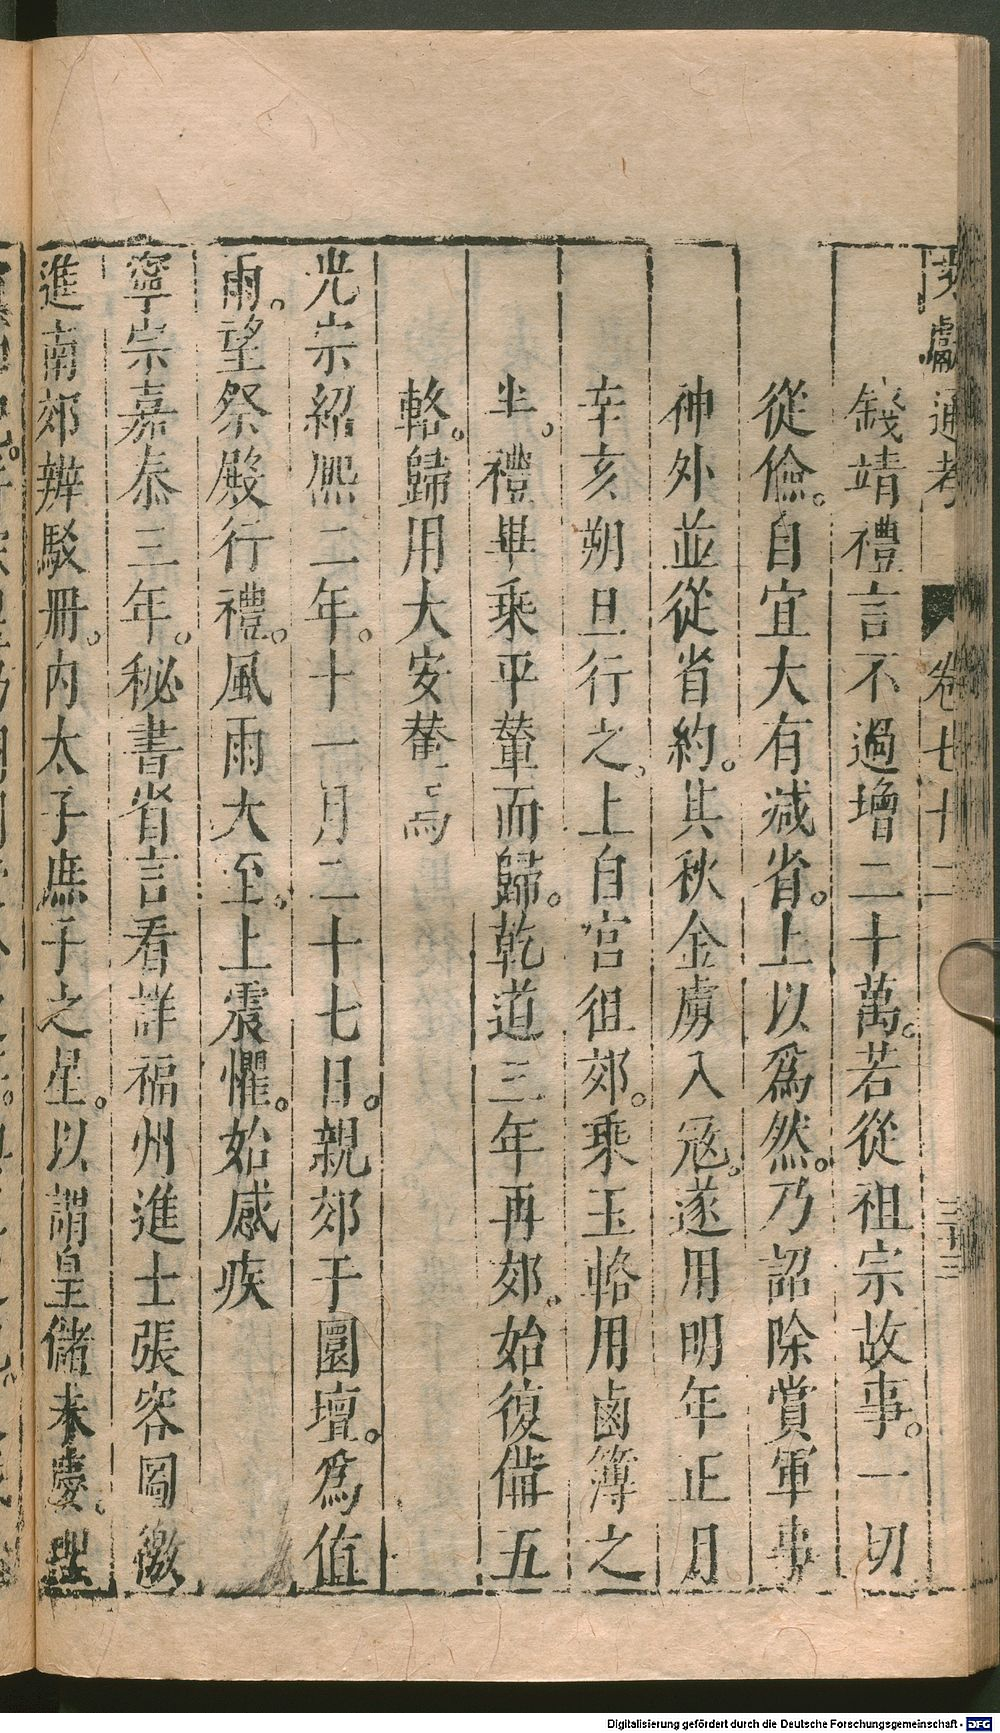 文獻通考 卷七十二 三十三
錢靖禮言不過增二十萬。若從祖宗故事。一切
從儉。自宜大有減省。上以爲然。乃詔除賞軍事
神外並從省約。其秋金虜入寇。遂用明年正月
辛亥朔旦行之。上自宮徂郊。乘玉輅用鹵簿之
半。禮畢乘平輦而歸。乾道三年再郊。始復備五
輅。歸用大安輦焉
光宗紹熙二年。十一月二十七日。親郊于圜壇。爲值
雨。望祭殿行禮。風雨大至。上震懼。始感疾
寧宗嘉泰三年。秘書省言看詳福州進士張容圖徼
進南郊辨駁冊。内太子庶子之星。以謂皇儲未慶。
Digitalisierung gefördert durch die Deutsche Forschungsgemeinschaft - DFG